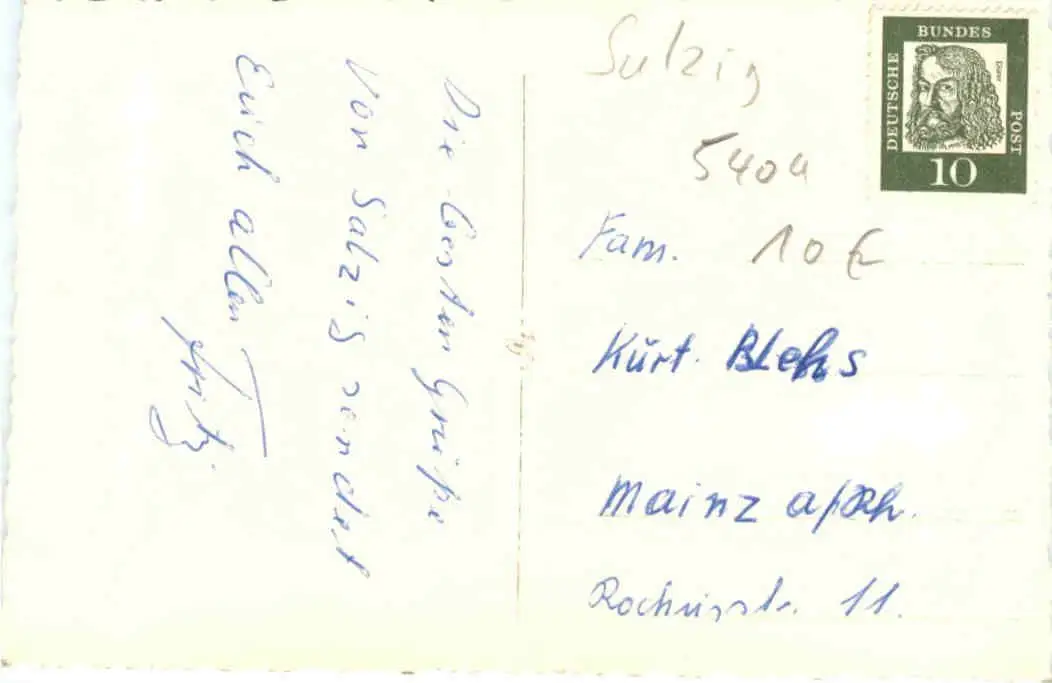 Die besten Grüße
Von Salzig sendet
Euch allen
Fritz
Sulzig
5404
10 €
DEUTSCHE
BUNDES
POST
Dürer
10
Fam.
Kurt. Blehs
Mainz a/Rh.
Rochusstr. 11.